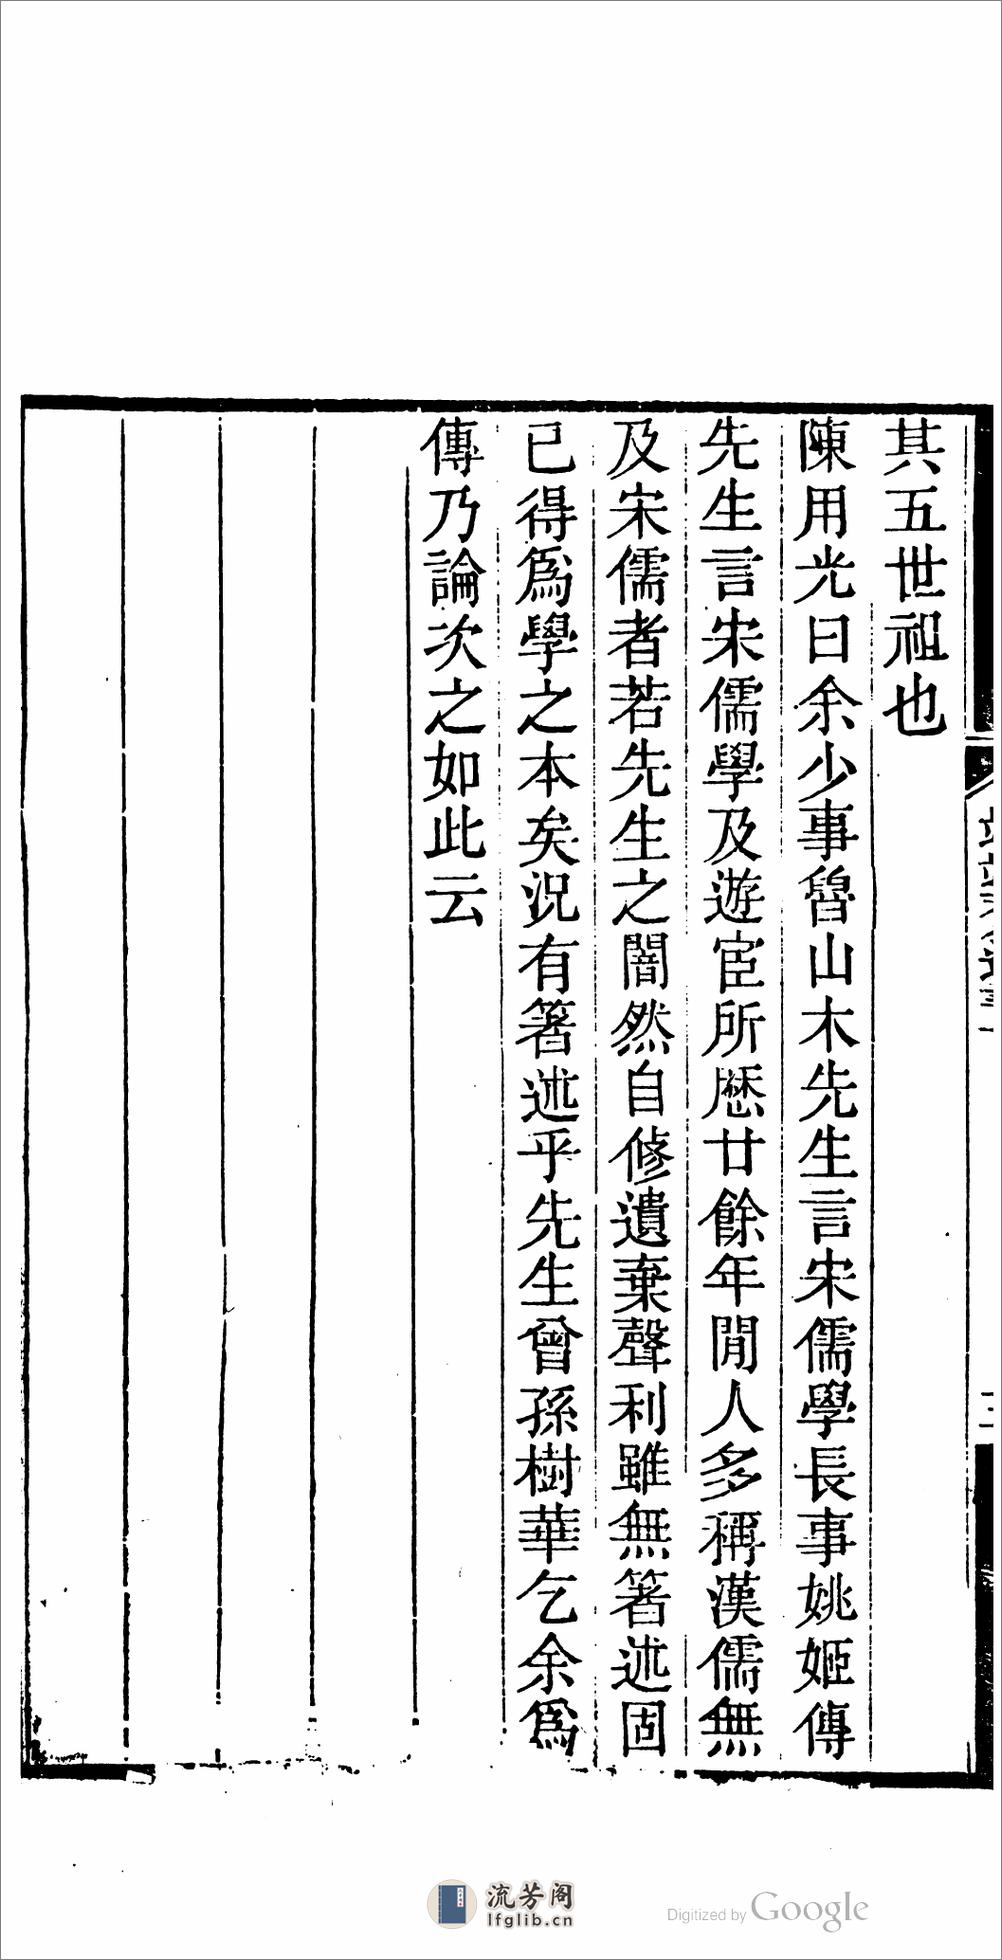 其五世祖也
陳用光曰余少事魯山木先生言宋儒學長事姚姬傳
先生言宋儒學及遊宦所歷廿餘年閒人多稱漢儒無
及宋儒者若先生之闇然自修遺棄聲利雖無箸述固
已得爲學之本矣況有箸述乎先生曾孫樹華乞余爲
傳乃論次之如此云
流芳阁
lfglib.cn
Digitized by Google